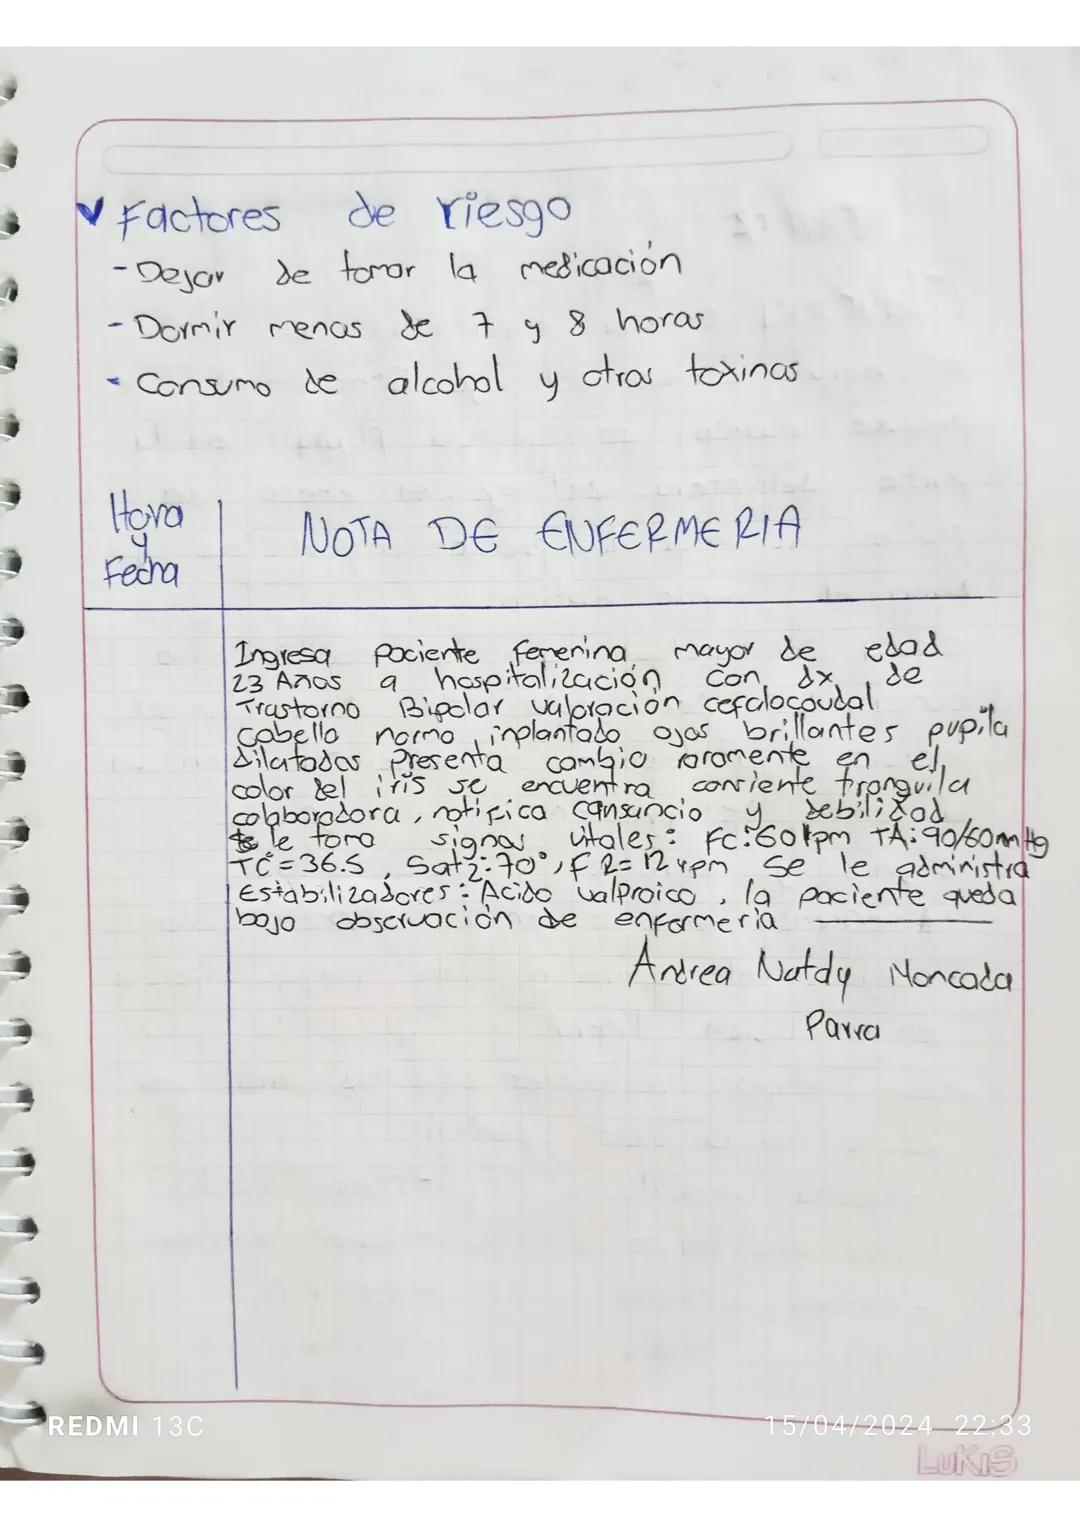 Factores de riesgo
- Dejar de tomar la medicación
- Dormir menos de 7 y 8 horas
- Consumo de alcohol y otras toxinas
Hora
y
Fecha
NOTA DE ENFERMERIA
Ingresa paciente femenina mayor de edad
23 Años a hospitalización con dx de
Trastorno Bipolar valoración cefalocaudal
cabello normo inplantado ojos brillantes pupila
dilatadas presenta cambio raramente en el
color del iris se encuentra conriente tranquila
colaboradora, notifica cansancio y debilidad
le toma signos vitales: Fc:60lpm TA:90/60mmHg
TC°=36.5, Sat2:70°, FR=12rpm se le administra
Estabilizadores: Acido valproico, la paciente queda
bajo observación de enfermeria
Andrea Natdy Moncada
Parra
REDMI 13C
15/04/2024 22:33
LUKIS